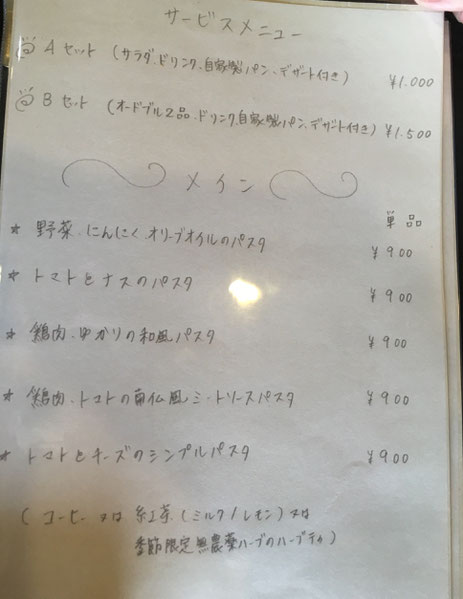 サービスメニュー
Aセット (サラダ、ドリンク、自家製パン、デザート付き) ¥1.000
Bセット (オードブル2品、ドリンク、自家製パン、デザート付き) ¥1.500
メイン
単品
* 野菜、にんにくオリーブオイルのパスタ ¥900
* トマトとナスのパスタ ¥900
* 鶏肉、ゆかりの和風パスタ ¥900
* 鶏肉、トマトの南仏風ミートソースパスタ ¥900
* トマトとチーズのシンプルパスタ ¥900
(コーヒー又は紅茶(ミルク/レモン)又は
季節限定無農薬ハーブのハーブティ)